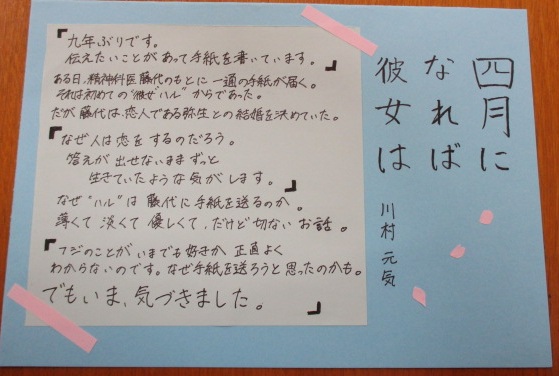 四月に
なれば
彼女は
川村 元気
『九年ぶりです。
伝えたいことがあって手紙を書いています。』
ある日、精神科医藤代のもとに一通の手紙が届く。
それは初めての“彼女”ハル”からであった。
だが藤代は、恋人である弥生との結婚を決めていた。
『なぜ人は恋をするのだろう。
答えが出せないままずっと
生きていたような気がします。』
なぜ“ハル”は藤代に手紙を送るのか。
薄くて淡くて優しくて、だけど切ないお話。
『フジのことがいまでも好きか正直よく
わからないのです。なぜ手紙を送ろうと思ったのかも。
でもいま、気づきました。』